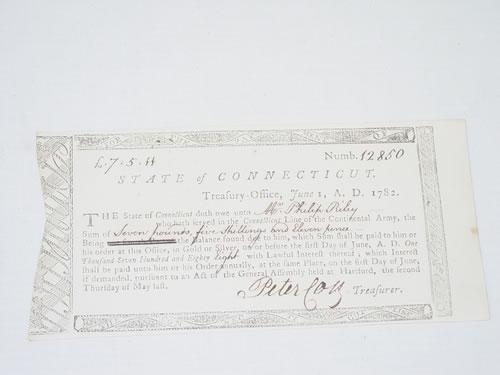 £.7.5.11
Numb. 12850
STATE of CONNECTICUT.
Treasury-Office, June 1, A. D. 1782.
THE State of Connecticut doth owe unto Mr Philip Riley
who hath served in the Connecticut Line of the Continental Army, the
Sum of Seven pounds, five shillings and eleven pence
Being the balance found due to him, which Sum shall be paid to him or
his order at this Office, in Gold or Silver, on or before the first Day of June, A. D. One
Thousand Seven Hundred and Eighty eight with Lawful Interest thereof; which Interest
shall be paid unto him or his Order annually, at the same Place, on the first Day of June,
if demanded, pursuant to an Act of the General Assembly held at Hartford, the second
Thursday of May last.
Peter Colt Treasurer.